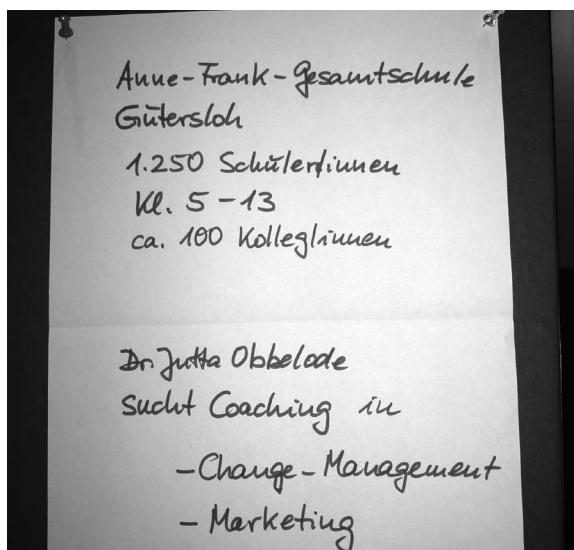 Anne-Frank-Gesamtschule
Gütersloh
1.250 Schüler/innen
Kl. 5-13
ca. 100 Kolleg/innen
Dr. Jutta Obbelode
sucht Coaching in
- Change-Management
- Marketing